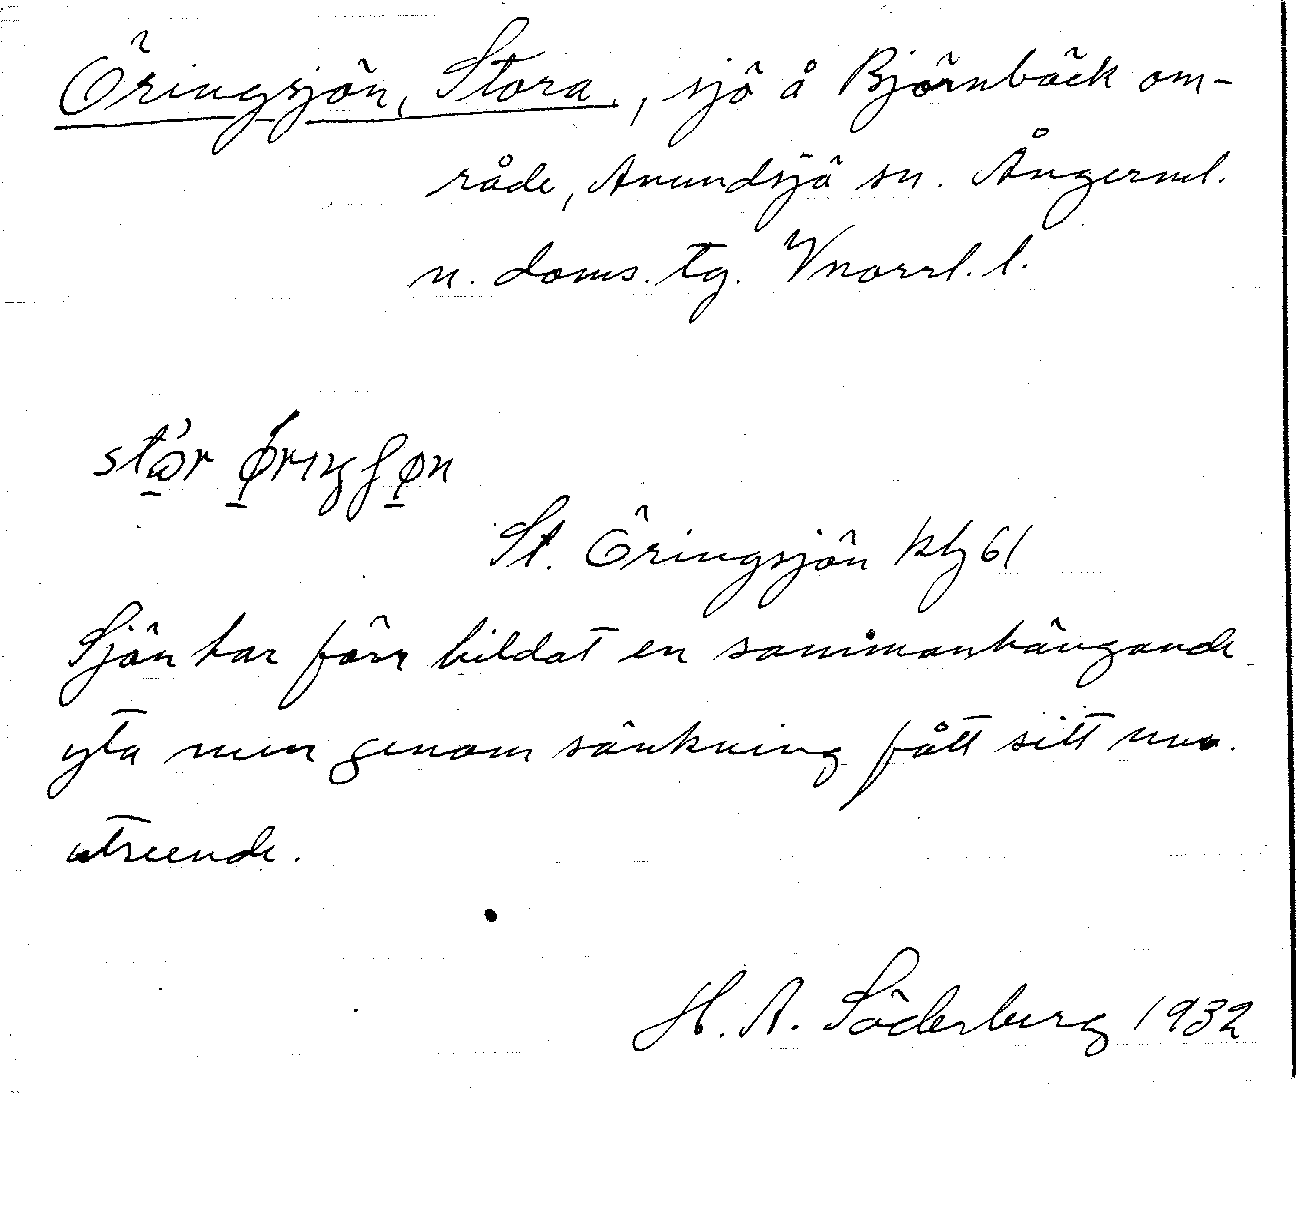 Öringsjön, Stora, sjö å Björnbäck om-
råde, Anundsjö sn. Ångerml.
n. doms. tg. Vnorrl. l.
St. Öringsjön kbl 61
Sjön har förr bildat en sammanhängande
yta men genom sänkning fått sitt nuv.
utseende.
H. A. Söderberg 1932